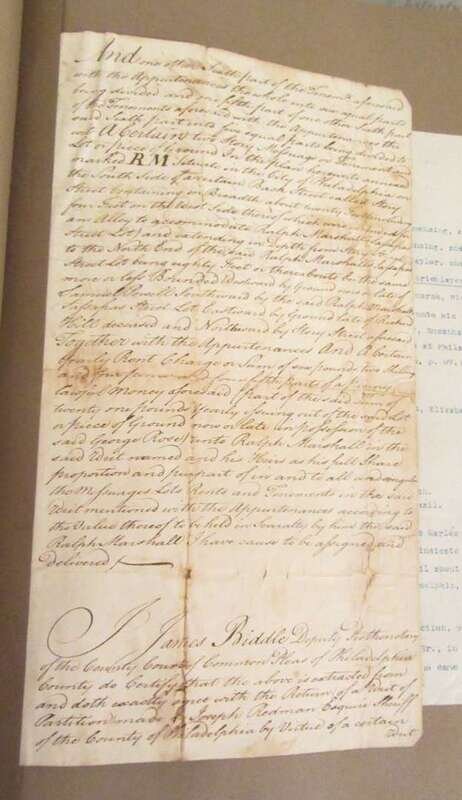 And one other Sixth part of the Tenemts. aforesaid
with the Appurtenances the whole into six equal parts
being divided and one fifth part of one other Sixth part
of the Tenements aforesaid with the Appurtenances the
said Sixth part into five equal parts being divided to
wit A Certain two Story Messuage or Tenement and
Lot or piece of Ground In the plan hereunto annexed
marked RM Situate in the City of Philadelphia on
the South Side of a certain Back Street called Story
Street Containing in Breadth about twenty
four Feet on the West Side thereof which
an Alley to accommodate Ralph Marshall's Sassafras
Street Lot) and extending in depth from Story Street
to the North End of the said Ralph Marshall's Sassafras
Street Lot being eighty Feet or thereabouts be the same
more or less Bounded Westward by Ground now or late of
Samuel Powell Southward by the said Ralph Marshall's
Sassafras Street Lot Eastward by Ground late of Richard
Hill deceased and Northward by Story Street aforesaid
Together with the Appurtenances And A Certain
Yearly Rent Charge or Sum of two pounds two Shillings
and four pence and four fifth parts of a penny
lawful Money aforesaid (part of the said
twenty one pounds Yearly issuing out of the said Lot
or piece of Ground now or late in possession of the
said George Rose) unto Ralph Marshall in the
said Writ named and his Heirs as his full Share
proportion and purpart of in and to all and singular
the Messuages Lots Rents and Tenements in the said
Writ mentioned with the Appurtenances according to
the Value thereof to be held in Severalty by him the said
Ralph Marshall I have cause to be assigned and
delivered
I James Biddle Deputy Prothonotary
of the County Court of Common Pleas of Philadelphia
County do Certify that the above is extracted from
and doth exactly agree with the Return of a Writ of
Partition made by Joseph Redman Esquire Sheriff
of the County of Philadelphia by Virtue of a certain
Writ